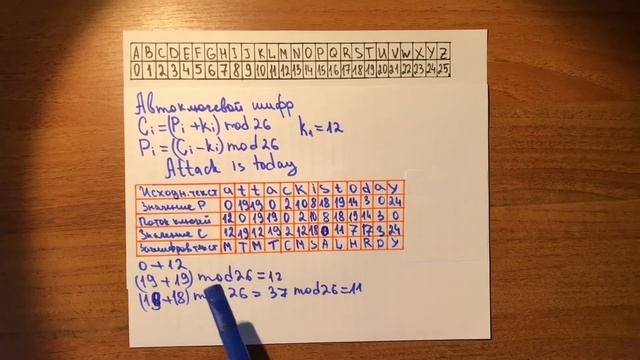 A B C D E F G H I J K L M N O P Q R S T U V W X Y Z
0 1 2 3 4 5 6 7 8 9 10 11 12 13 14 15 16 17 18 19 20 21 22 23 24 25
Автоключевой шифр
Ci=(Pi+ki) mod 26 k1=12
Pi=(Ci-ki) mod 26
Attack is today
Исходн.текст a t t a c k i s t o d a y
Значение P 0 19 19 0 2 10 8 18 19 14 3 0 24
Поток ключей 12 0 19 19 0 2 10 8 18 19 14 3 0
Значение C 12 19 12 19 2 12 18 0 11 7 17 3 24
Зашифров текст M T M T C M S A L H R D Y
0+12
(19+19) mod 26=12
(19+18) 26= 37 mod 26=11